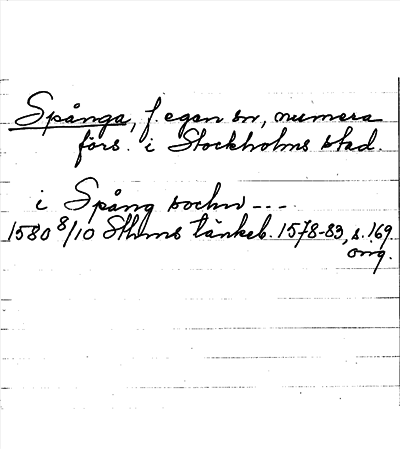 Spånga, f. egen sn, numera
förs. i Stockholms stad.
i Spång sochn ---
1580 8/10 Sthms tänkeb. 1578-83, s. 169
orig.